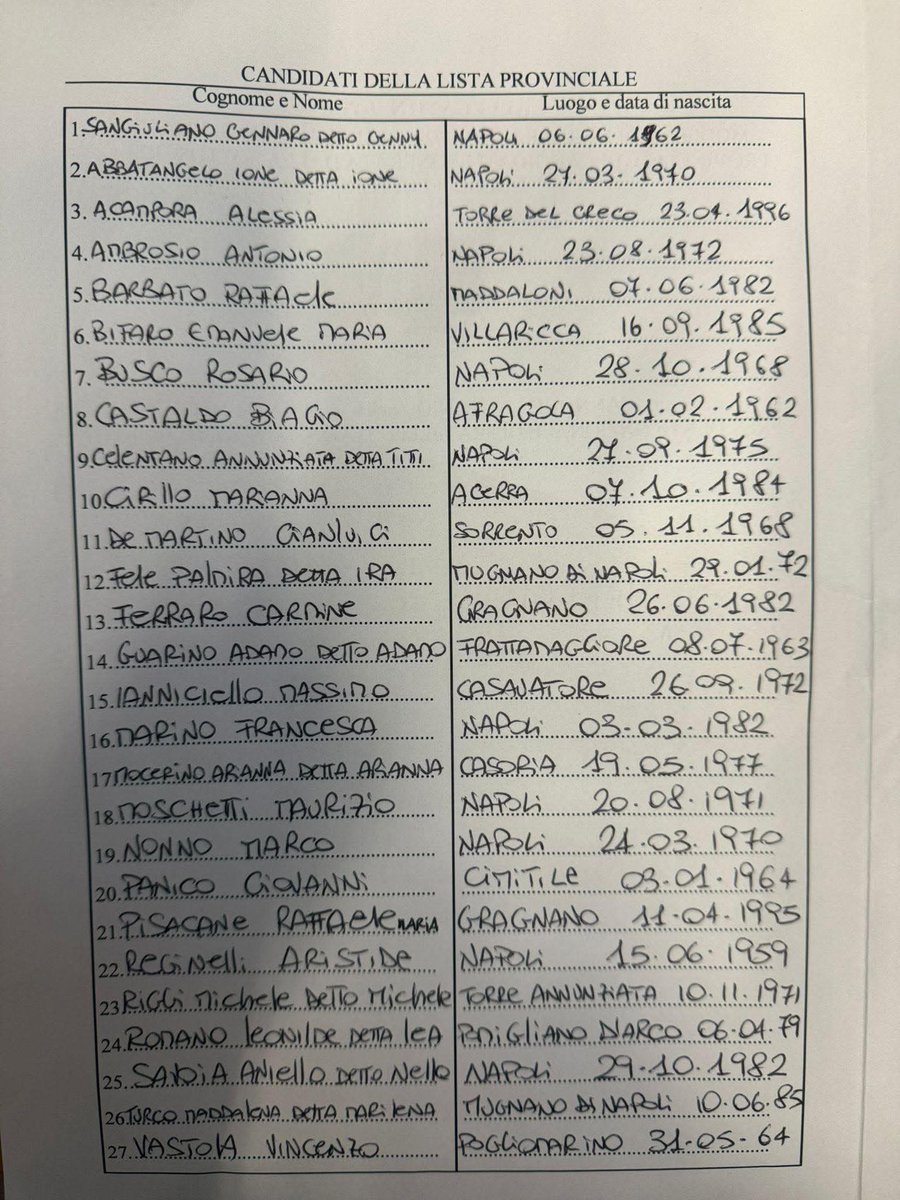 CANDIDATI DELLA LISTA PROVINCIALE
Cognome e Nome Luogo e data di nascita
1. SANGIULIANO GENNARO DETTO GENNY NAPOLI 06.06.1962
2. ABBATANGELO IONE DETTA IONE NAPOLI 27.03.1970
3. ACAMPORA ALESSIA TORRE DEL GRECO 23.04.1996
4. AMBROSIO ANTONIO NAPOLI 23.08.1972
5. BARBATO RAFFAele MADDALONI 07.06.1982
6. BIFARO EMANUele MARIA VILLARICCA 16.09.1985
7. BUSCO ROSARIO NAPOLi 28.10.1968
8. CASTALDO BIAGIO AFRAGOLA 01.02.1962
9. CeleNTANO ANNUNZIATA DETTA TITI NAPOLi 27.09.1975
10. CiRillo MARIANNA ACERRA 07.10.1984
11. De MARTINO GIANLUIGI SORRENTO 05.11.1968
12. Fele PALMIRA DETTA IRA MUGNANO Di NAPOLi 29.01.72
13. FeRRARO CARMINE GRAGNANO 26.06.1982
14. GUARINO ADAMO DETTO ADAMO FRATTAMAGGiORe 08.07.1963
15. IANNICiello MASSIMO CASAVATORe 26.09.1972
16. MARINO FRANCESCA NAPOLi 03-03-1982
17. MOCERINO ARIANNA DETTA ARIANNA CASORIA 19.05.1977
18. MOSCHETTi MAURIZIO NAPOLi 20.08.1971
19. NONNO MARCO NAPOLi 24.03.1970
20. PANICO GIOVANNI CIMITILE 03.01.1964
21. PISACANE RAFFAele MARIA GRAGNANO 11.04.1995
22. ReGiNelli ARiSTiDe NAPOLi 15.06.1959
23. RiGGi Michele DeTTo Michele TORRE ANNUNZIATA 10.11.1971
24. ROMANO leONilDe DETTA leA POMIGLIANO D'ARCO 06.04.79
25. SAVIA ANiello DeTTo Nello NAPOLi 29-10.1982
26. TURCO MADDALENA DETTA MARILENA MUGNANO Di NAPOLi 10.06.85
27. VASTOLA VINCENZO POGGIOMARINO 31-05-64